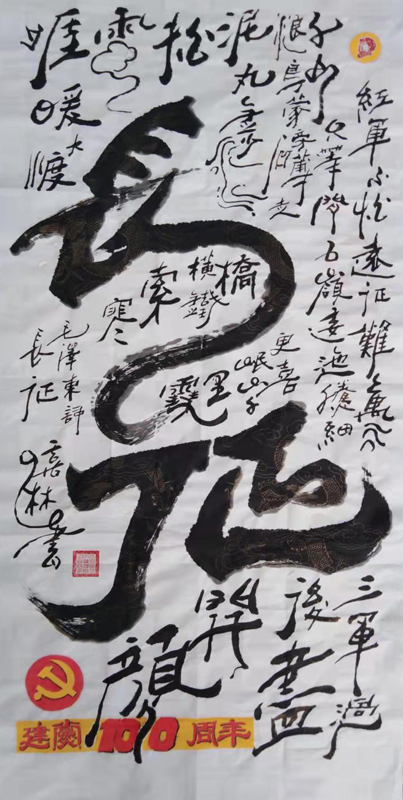 長征
紅軍不怕遠征難萬水
千山只等閒五嶺逶迤騰細
浪烏蒙磅礴走
泥丸金沙水
拍
雲
崖暖
大渡
橋
橫鐵
索
寒
更喜
岷山千
里雪
三軍過
後盡
開
顏
毛澤東詩
長征
林書
建黨100周年